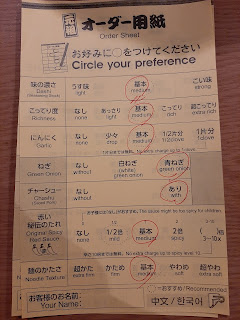 オーダー用紙
Order Sheet
お好みに○をつけてください
Circle your preference
味の濃さ うす味 基本 こい味
Dashi light medium strong
こってり度 なし あっさり 基本 こってり 超こってり
Richness none light medium rich extra rich
にんにく なし 少々 基本 1/2片分 1片分
Garlic none medium 1/2clove 1clove
ねぎ なし 白ねぎ 青ねぎ
Green Onion without white green onion green onion
チャーシュー なし あり
Chashu without with
赤い秘伝のたれ なし 1/2倍 基本 2倍 倍
Original Spicy Red Sauce none mild medium spicy 3~10x
麺のかたさ 超かた かため 基本 やわめ 超やわ
Noodle Texture extra firm firm medium soft extra soft
おすすめ/Recommended
お客様のお名前:
Your Name:
中文/한국어